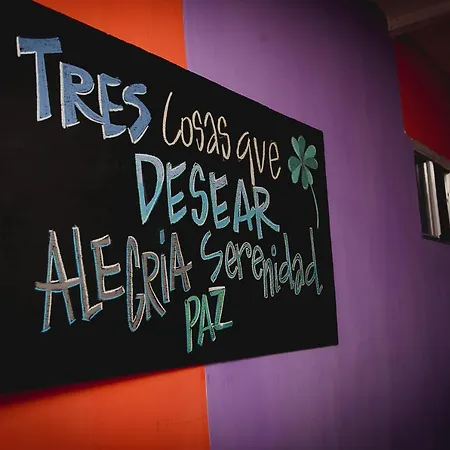 TRES Cosas que
DESEAR
ALEGRIA Serenidad
PAZ